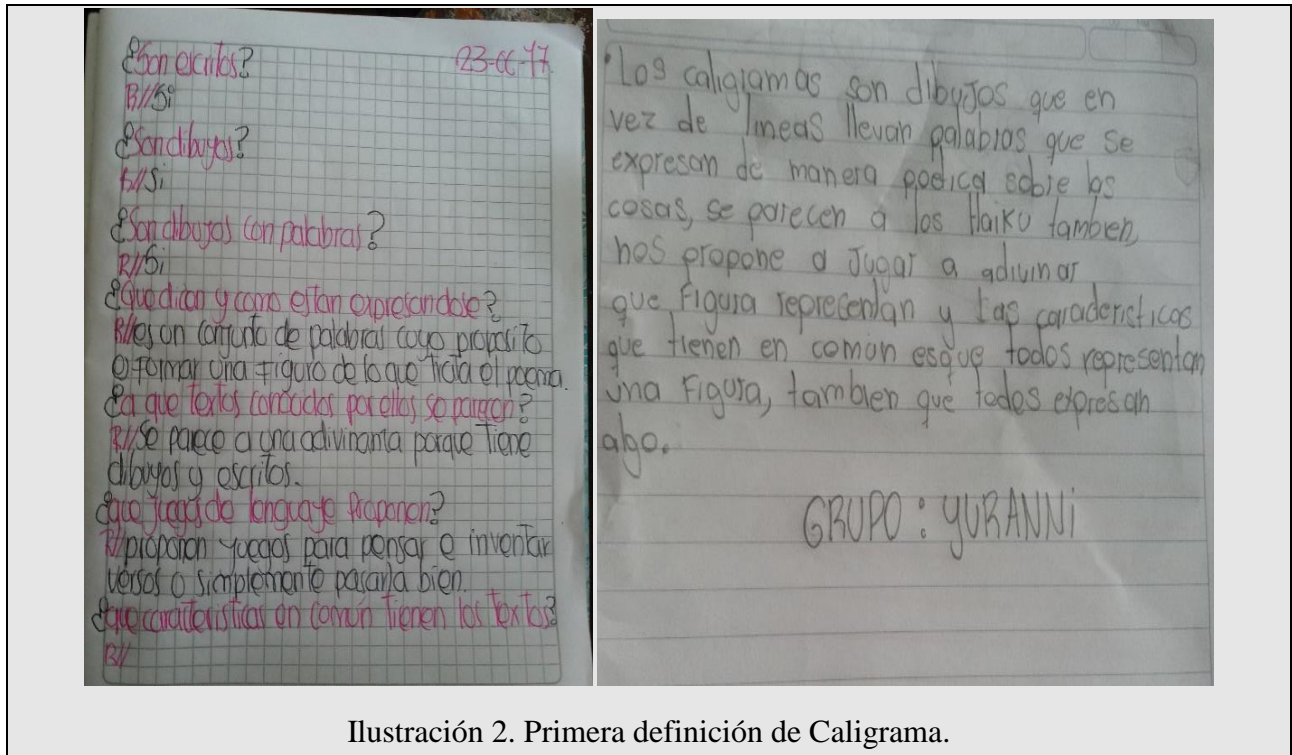 ¿Son escritos? 23-oc-17
R//Si
¿Son dibujos?
R//Si
¿Son dibujos con palabras?
R//Si
¿Que dicen y como estan expresandose?
R//es un conjunto de palabras cuyo proposito
es formar una figura de lo que trata el poema.
¿a que textos conocidos por ellos se parecen?
R//Se parece a una adivinanza porque tiene
dibujos y escritos.
¿que juegos de lenguaje proponen?
R//proponen juegos para pensar e inventar
versos o simplemente pasarla bien.
¿que caracteristicas en común tienen los textos?
R//
•Los caligramas son dibujos que en
vez de lineas llevan palabras que se
expresan de manera poetica sobre las
cosas, se parecen a los Haiku tambien,
nos propone a jugar a adivinar
que figura representan y las caracteristicas
que tienen en comun esque todos representan
una Figura, tambien que todos expresan
algo.
GRUPO: YURANNi
Ilustración 2. Primera definición de Caligrama.